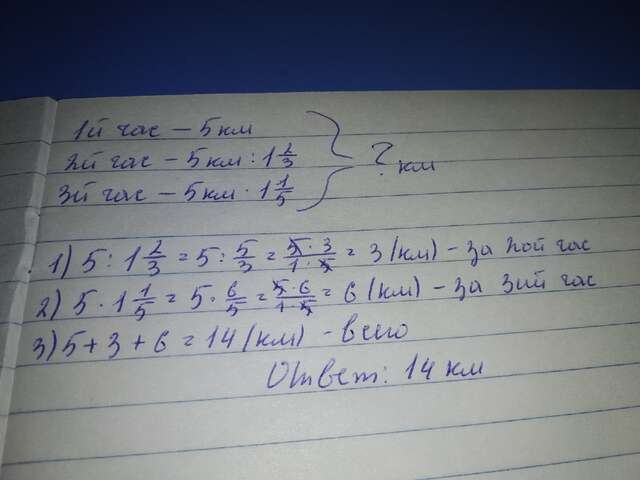 1й час – 5 км
2й час – 5 км : 1 2/3
3й час – 5 км · 1 1/5
? км
1) 5 : 1 2/3 = 5 : 5/3 = 5·3/1·5 = 3 (км) – за 2ой час
2) 5 · 1 1/5 = 5 · 6/5 = 5·6/1·5 = 6 (км) – за 3ий час
3) 5 + 3 + 6 = 14 (км) – всего
Ответ: 14 км